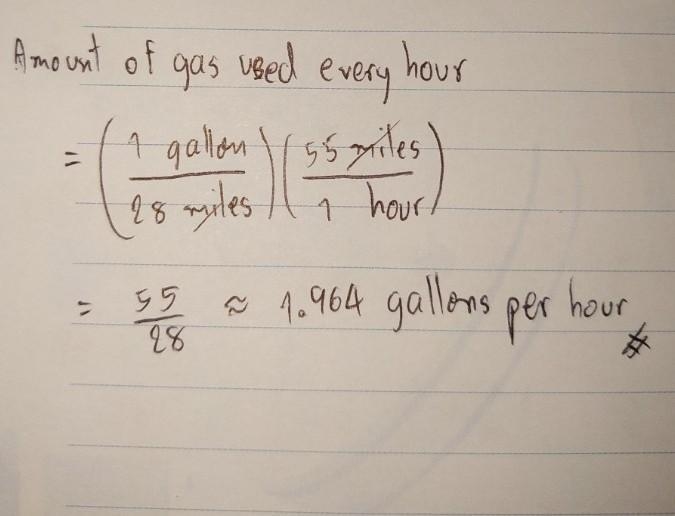 Amount of gas used every hour
= (1 gallon / 28 miles) (55 miles / 1 hour)
= 55 / 28 ≈ 1.964 gallons per hour #